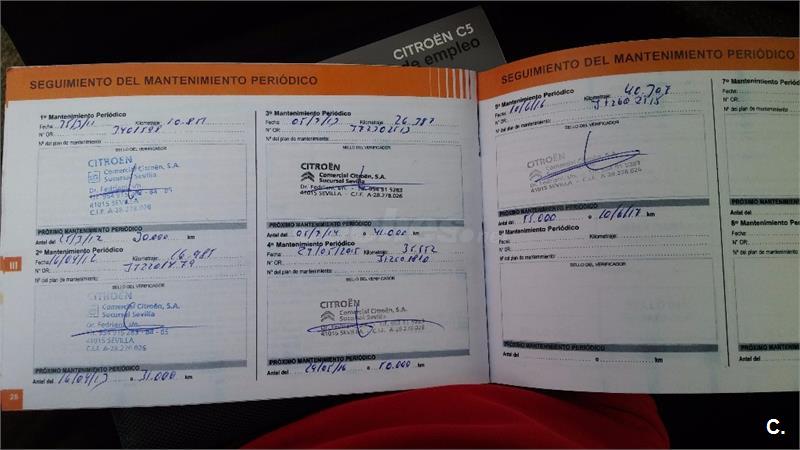 CITROËN C5
de empleo
SEGUIMIENTO DEL MANTENIMIENTO PERIÓDICO
1º Mantenimiento Periódico
Fecha: 15/3/11 Kilometraje: 10.811
N° OR:
Nº del plan de mantenimiento:
SELLO DEL VERIFICADOR
CITROËN
Comercial Citroën, S.A.
Sucursal Sevilla
Dr. Fedriani, s/n.
41015 SEVILLA
C.I.F. A-28.278.026
PRÓXIMO MANTENIMIENTO PERIÓDICO
Antel del 15/3/12 o 30.000 km
2º Mantenimiento Periódico
Fecha: 16/04/12 Kilometraje: 16.985
N° OR:
Nº del plan de mantenimiento:
SELLO DEL VERIFICADOR
CITROËN
Comercial Citroën, S.A.
Sucursal Sevilla
Dr. Fedriani, s/n.
41015 SEVILLA
C.I.F. A-28.278.026
PRÓXIMO MANTENIMIENTO PERIÓDICO
Antel del 16/04/13 o 31.000 km
III
26
3º Mantenimiento Periódico
Fecha: 05/7/13 Kilometraje: 26.387
N° OR:
Nº del plan de mantenimiento:
SELLO DEL VERIFICADOR
CITROËN
Comercial Citroën, S.A.
Sucursal Sevilla
Dr. Fedriani, s/n.
41015 SEVILLA
C.I.F. A-28.278.026
PRÓXIMO MANTENIMIENTO PERIÓDICO
Antel del 05/7/14 o 41.000 km
4º Mantenimiento Periódico
Fecha: 29/05/2015 Kilometraje: 35.552
N° OR:
Nº del plan de mantenimiento:
SELLO DEL VERIFICADOR
CITROËN
Comercial Citroën, S.A.
Sucursal Sevilla
41015 SEVILLA
C.I.F. A-28.278.026
PRÓXIMO MANTENIMIENTO PERIÓDICO
Antel del 29/05/16 o 50.000 km
SEGUIMIENTO DEL MANTENIMIENTO PERIÓDICO
5º Mantenimiento Periódico
Fecha: 10/6/16 Kilometraje: 40.707
N° OR:
Nº del plan de mantenimiento:
SELLO DEL VERIFICADOR
CITROËN
Comercial Citroën, S.A.
Sucursal Sevilla
41015 SEVILLA
C.I.F. A-28.278.026
PRÓXIMO MANTENIMIENTO PERIÓDICO
Antel del 55.000 o 10/6/17 km
6º Mantenimiento Periódico
Fecha: Kilometraje:
N° OR:
Nº del plan de mantenimiento:
SELLO DEL VERIFICADOR
PRÓXIMO MANTENIMIENTO PERIÓDICO
Antel del o km
7º Mantenimiento Periódico
Fecha:
N° OR:
Nº del plan de mantenimiento:
PRÓXIMO
Antel del
8º Mantenimiento
Fecha:
N° OR:
Nº del plan de
PRÓXIMO
Antel del
C.